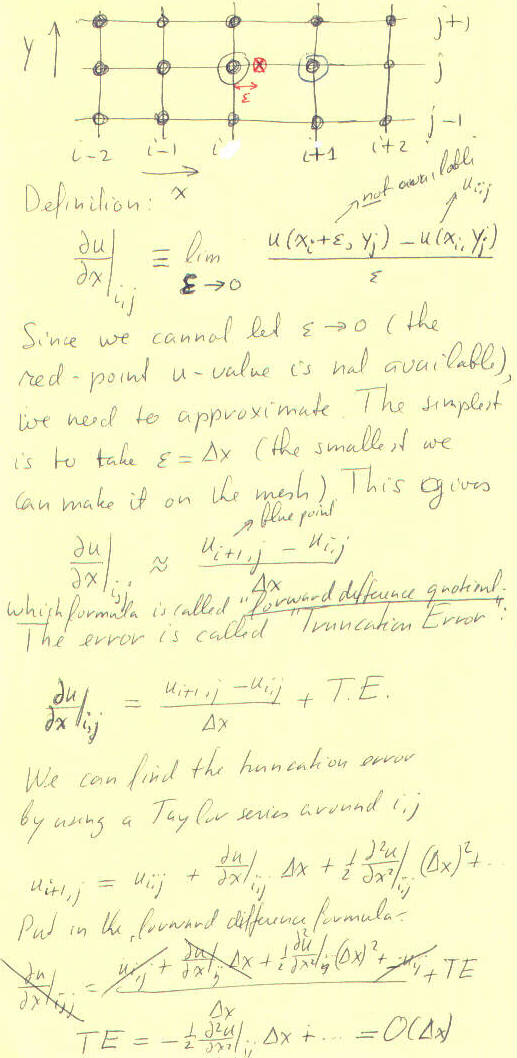 j+1
Y
j
ε
j-1
i-2 i-1 i i+1 i+2
x
not available
u_{i,j}
Definition:
∂u/∂x|_{i,j} ≡ lim_{ε→0} (u(x_i+ε, y_j) - u(x_i, y_j))/ε
Since we cannot let ε→0 (the
red-point u-value is not available),
we need to approximate. The simplest
is to take ε = Δx (the smallest we
can make it on the mesh). This gives
blue point
∂u/∂x|_{i,j} ≈ (u_{i+1,j} - u_{i,j})/Δx
which formula is called "forward difference quotient."
The error is called "Truncation Error":
∂u/∂x|_{i,j} = (u_{i+1,j} - u_{i,j})/Δx + T.E.
We can find the truncation error
by using a Taylor series around i,j
u_{i+1,j} = u_{i,j} + ∂u/∂x|_{i,j} Δx + 1/2 ∂²u/∂x²|_{i,j} (Δx)² + ...
Put in the forward difference formula:
∂u/∂x|_{i,j} = (u_{i,j} + ∂u/∂x|_{i,j} Δx + 1/2 ∂²u/∂x²|_{i,j} (Δx)² + ... - u_{i,j})/Δx + TE
TE = -1/2 ∂²u/∂x²|_{i,j} Δx + ... = O(Δx)